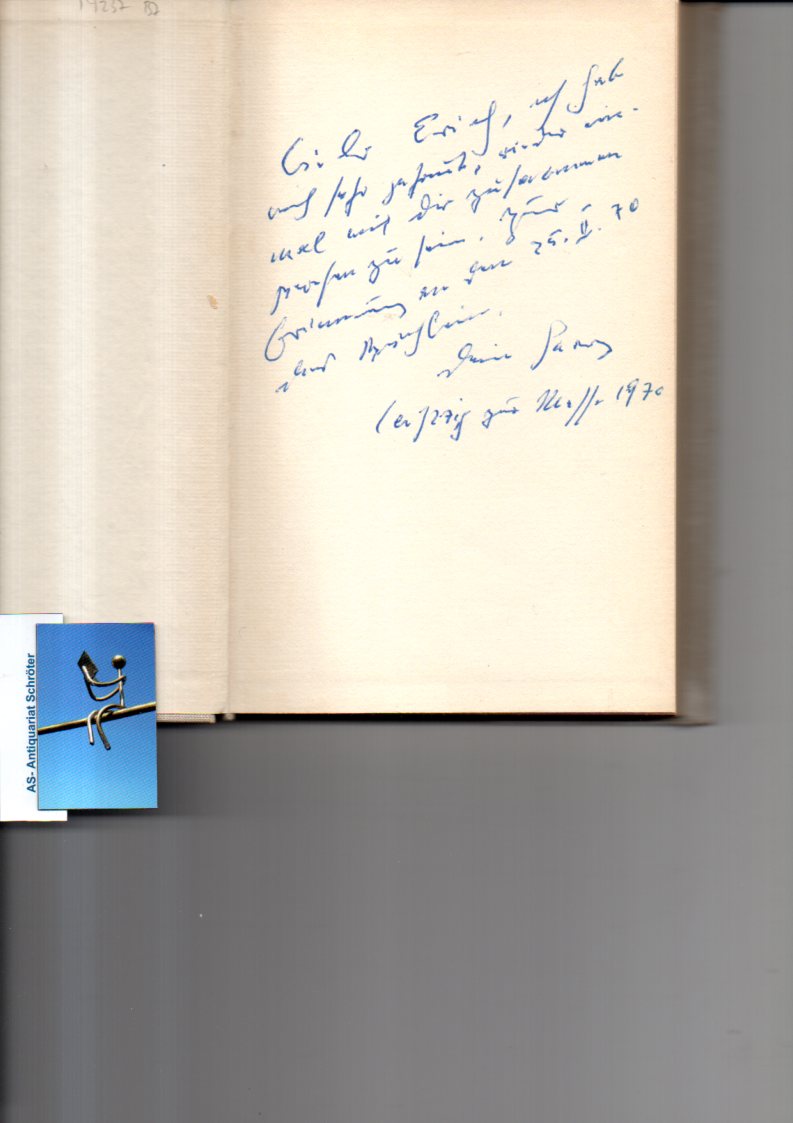 14237
Lieber Erich, ich hab
mich sehr gefreut, wieder ein-
mal mit Dir zusammen
gewesen zu sein. Zur
Erinnerung an den 25. II. 70
Dein
Leipzig zur Messe 1970
AS- Antiquariat Schröter